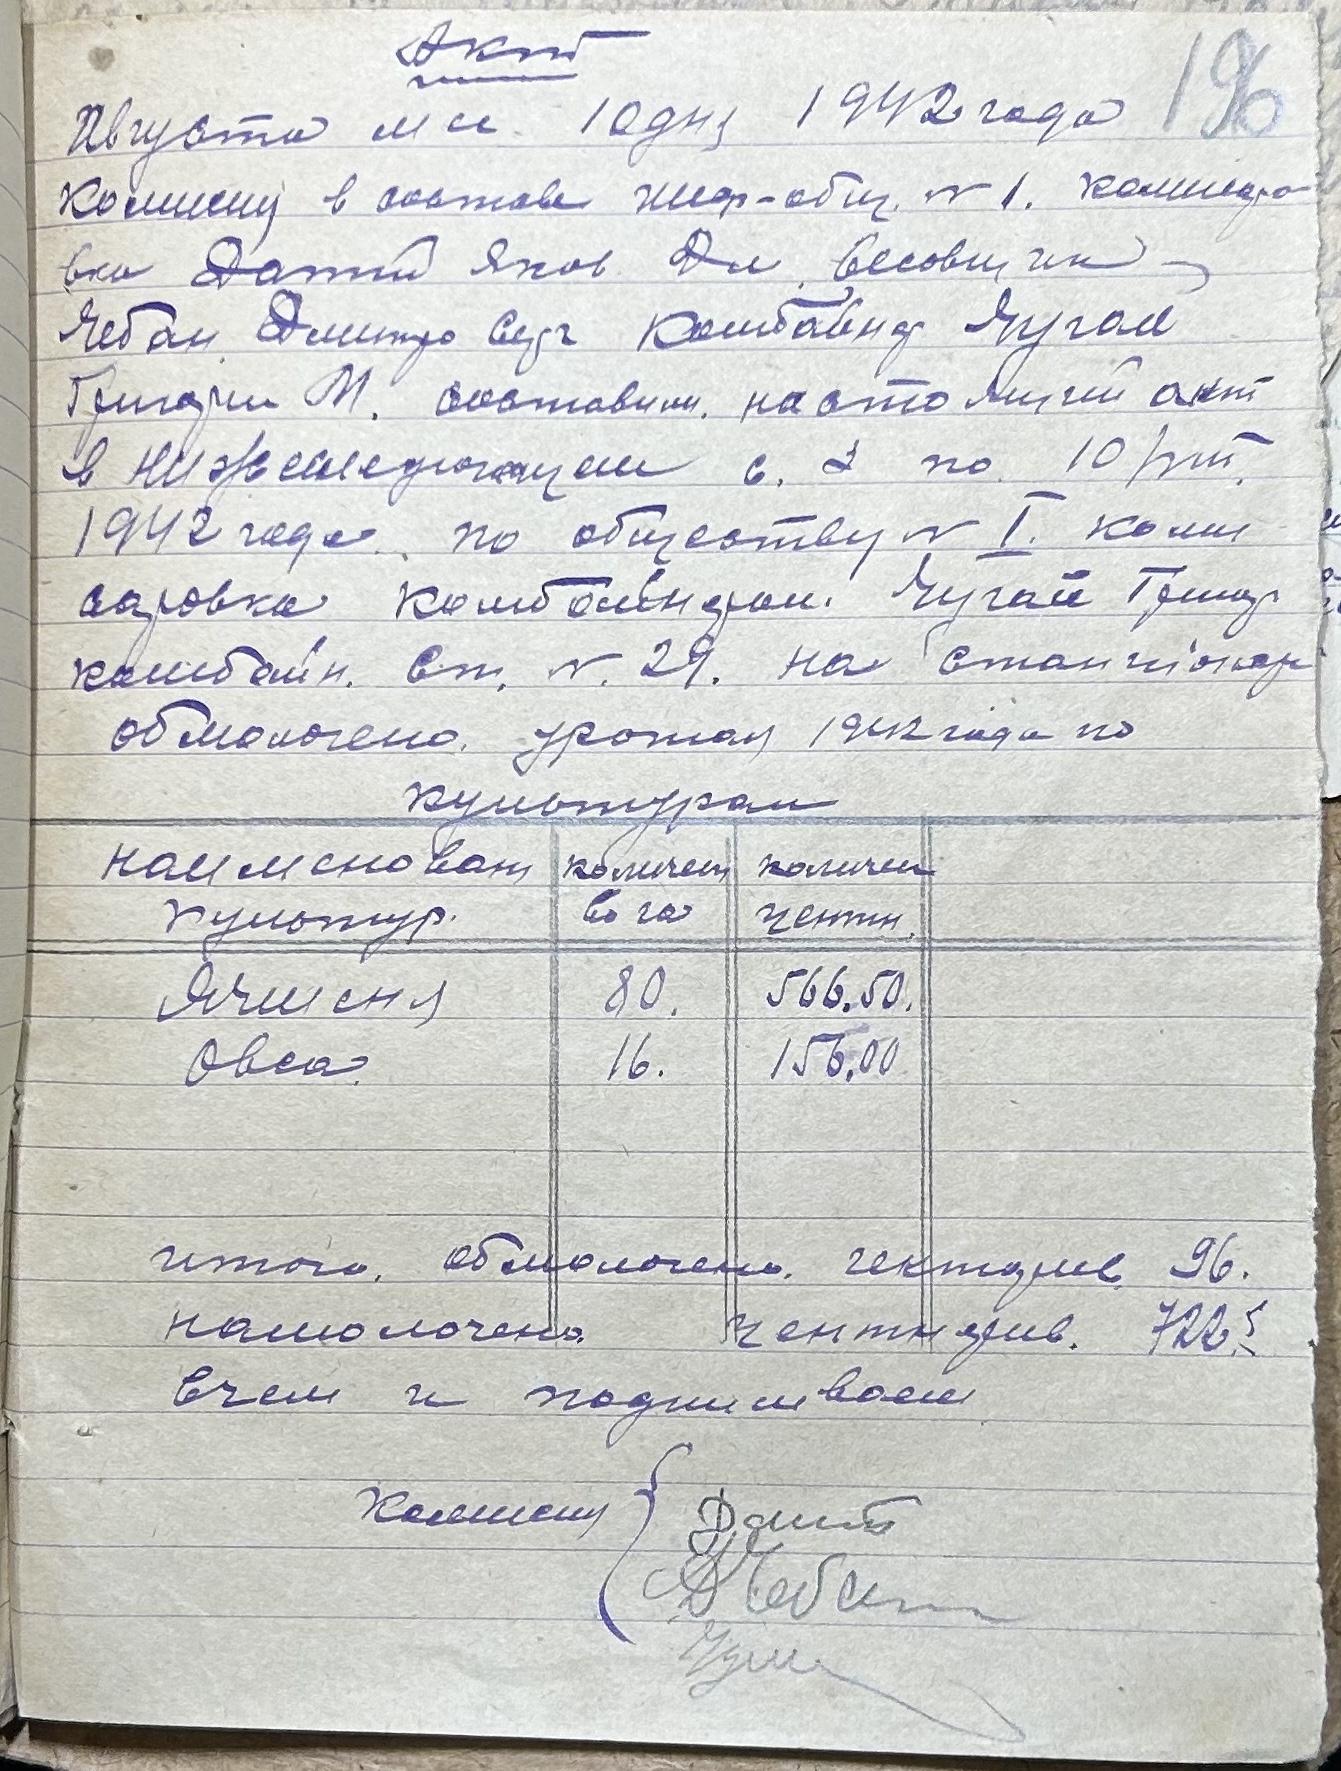 Акт
196
Августа м-ца 10 дня 1942 года
Комисия в составе шеф-общ. № 1. Комисаро
вка Датий Яков Дм весовщик
Чебан Дмитро комбайнер Чугай
Григори М. составили настоящий акт
в нижеследующем с. 2 по 10/
1942 года по обществу № I. Коми
саровка комбайнером Чугай Григор
комбайн. Ст. № 29. на станционар
обмолочено урожая 1942 года по
культурам
Наименован количест количес
культур. во га центн.
Ячменя 80. 566.50.
Овса 16. 156.00
итого. обмолочено. гектарив 96.
намолочено. центнерив. 722.5
Вчем и подписиваем
Комисия
Датий
ДЧебан